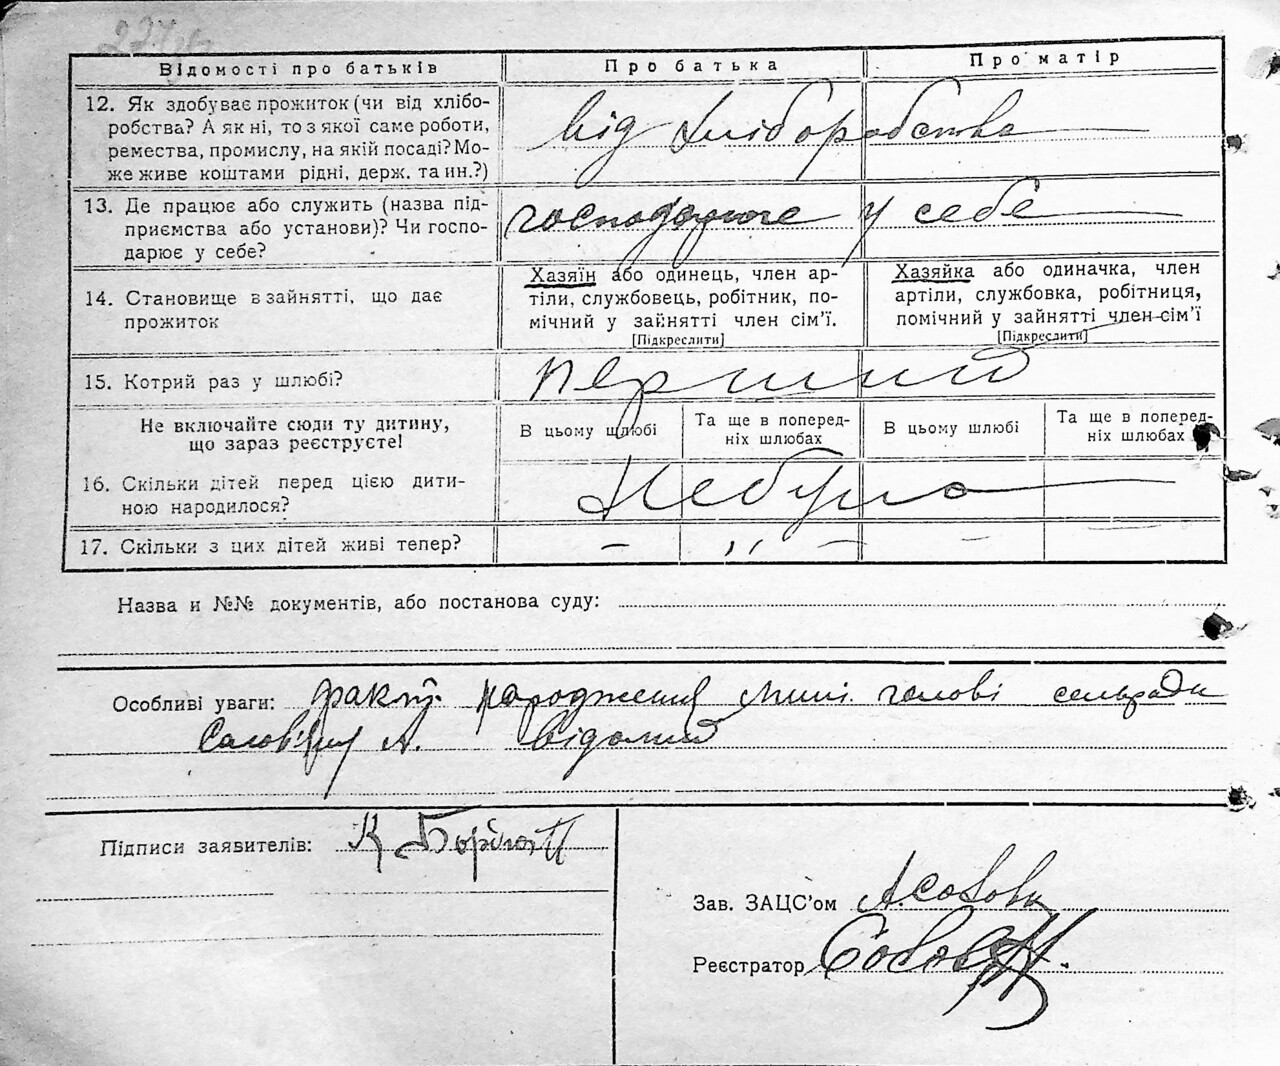 Відомості про батьків	Про батька	Про матір
12. Як здобуває прожиток (чи від хлібо-
робства? А як ні, то з якої саме роботи,
ремества, промислу, на якій посаді? Мо-
же живе коштами рідні, держ. та ин.?)
від хліборобства
13. Де працює або служить (назва під-
приємства або установи)? Чи госпо-
дарює у себе?
господарює у себе
14. Становище в зайнятті, що дає
прожиток
Хазяїн або одинець, член ар-
тіли, службовець, робітник, по-
мічний у зайнятті член сім’ї.
[Підкреслити]
Хазяйка або одиначка, член
артіли, службовка, робітниця,
помічний у зайнятті член сім’ї
[Підкреслити]
15. Котрий раз у шлюбі?
перший
Не включайте сюди ту дитину,
що зараз реєструєте!
В цьому шлюбі
Та ще в поперед-
ніх шлюбах
В цьому шлюбі
Та ще в поперед-
ніх шлюбах
16. Скільки дітей перед цією дити-
ною народилося?
Небуло
17. Скільки з цих дітей живі тепер?
– ,, – –
Назва и №№ документів, або постанова суду:
Особливі уваги: факт народження голові сельради
А. відомий
Підписи заявителів: К
Зав. ЗАЦС’ом
Реєстратор